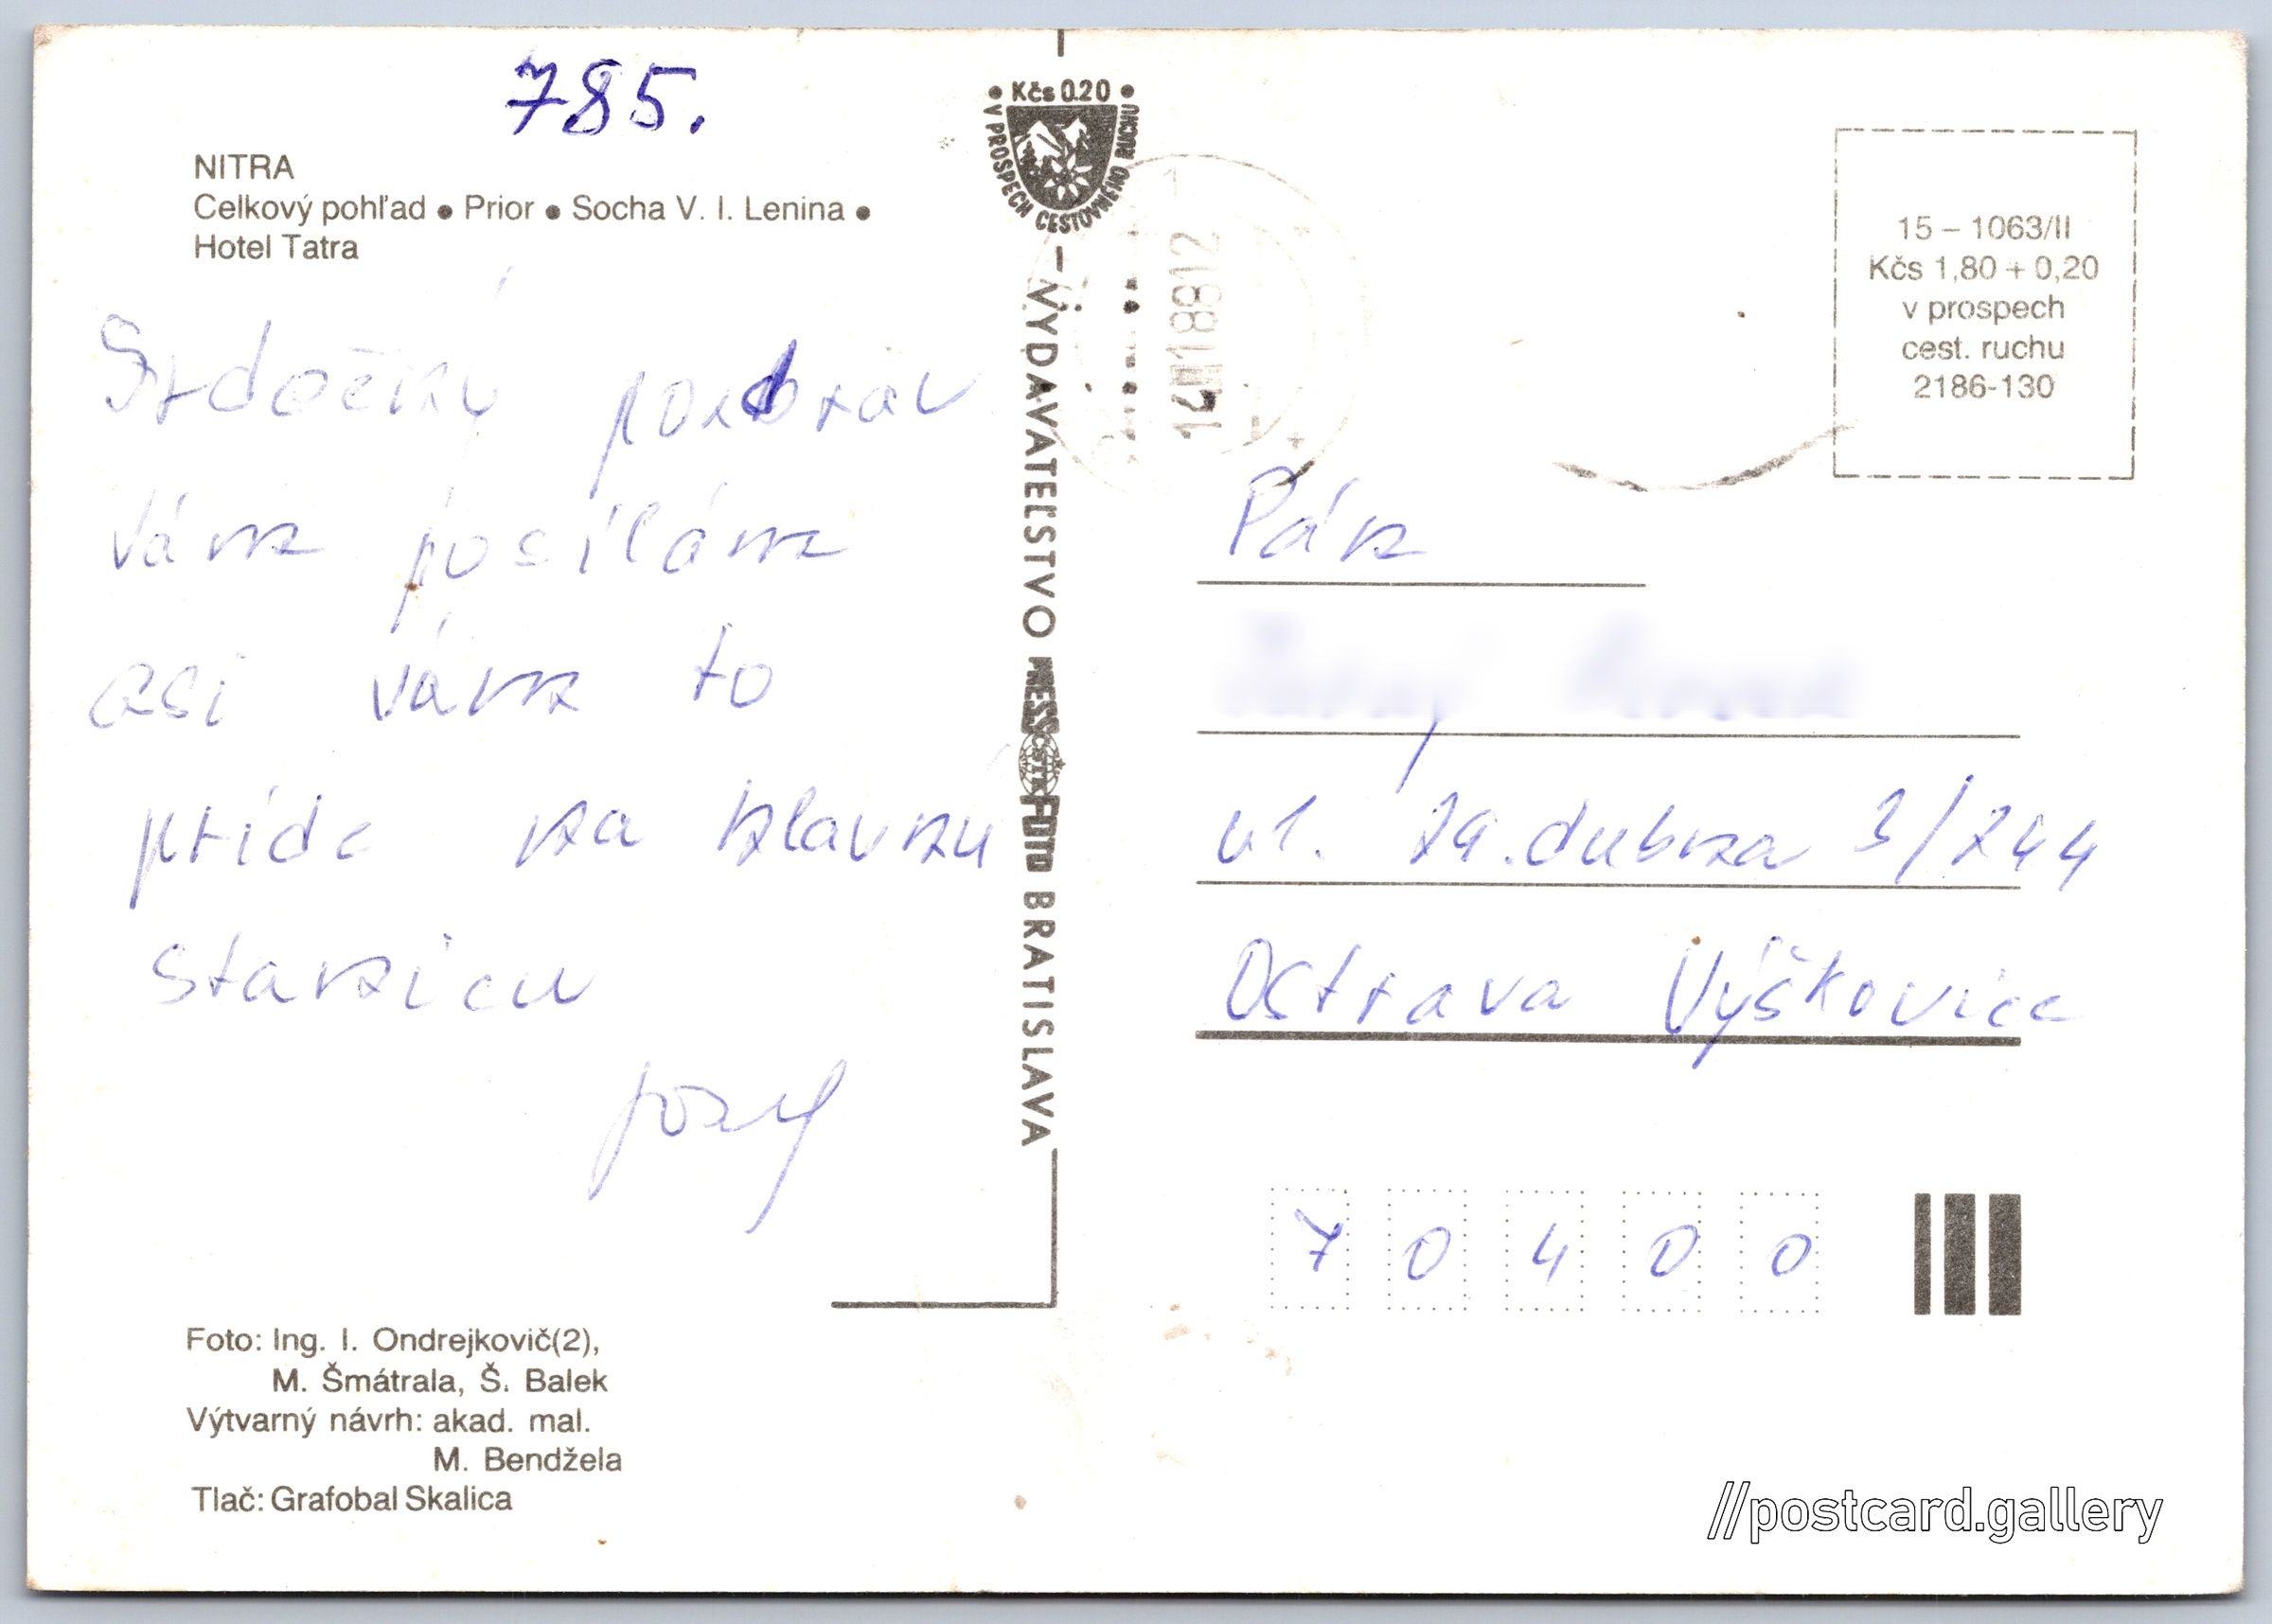 785.
NITRA
Celkový pohľad • Prior • Socha V. I. Lenina •
Hotel Tatra
Srdečný pozdrav
Vám posílám
asi vám to
príde na hlavnú
stanicu
Jozef
Foto: Ing. I. Ondrejkovič(2),
M. Šmátrala, Š. Balek
Výtvarný návrh: akad. mal.
M. Bendžela
Tlač: Grafobal Skalica
• Kčs 0.20 •
V PROSPECH CESTOVNÉHO RUCHU
VYDAVATEĽSTVO PRESSFOTO BRATISLAVA
ČSTK
15 – 1063/II
Kčs 1,80 + 0,20
v prospech
cest. ruchu
2186-130
Pán
ul. 29. dubna 3/244
Ostrava Výškovice
70400
//postcard.gallery